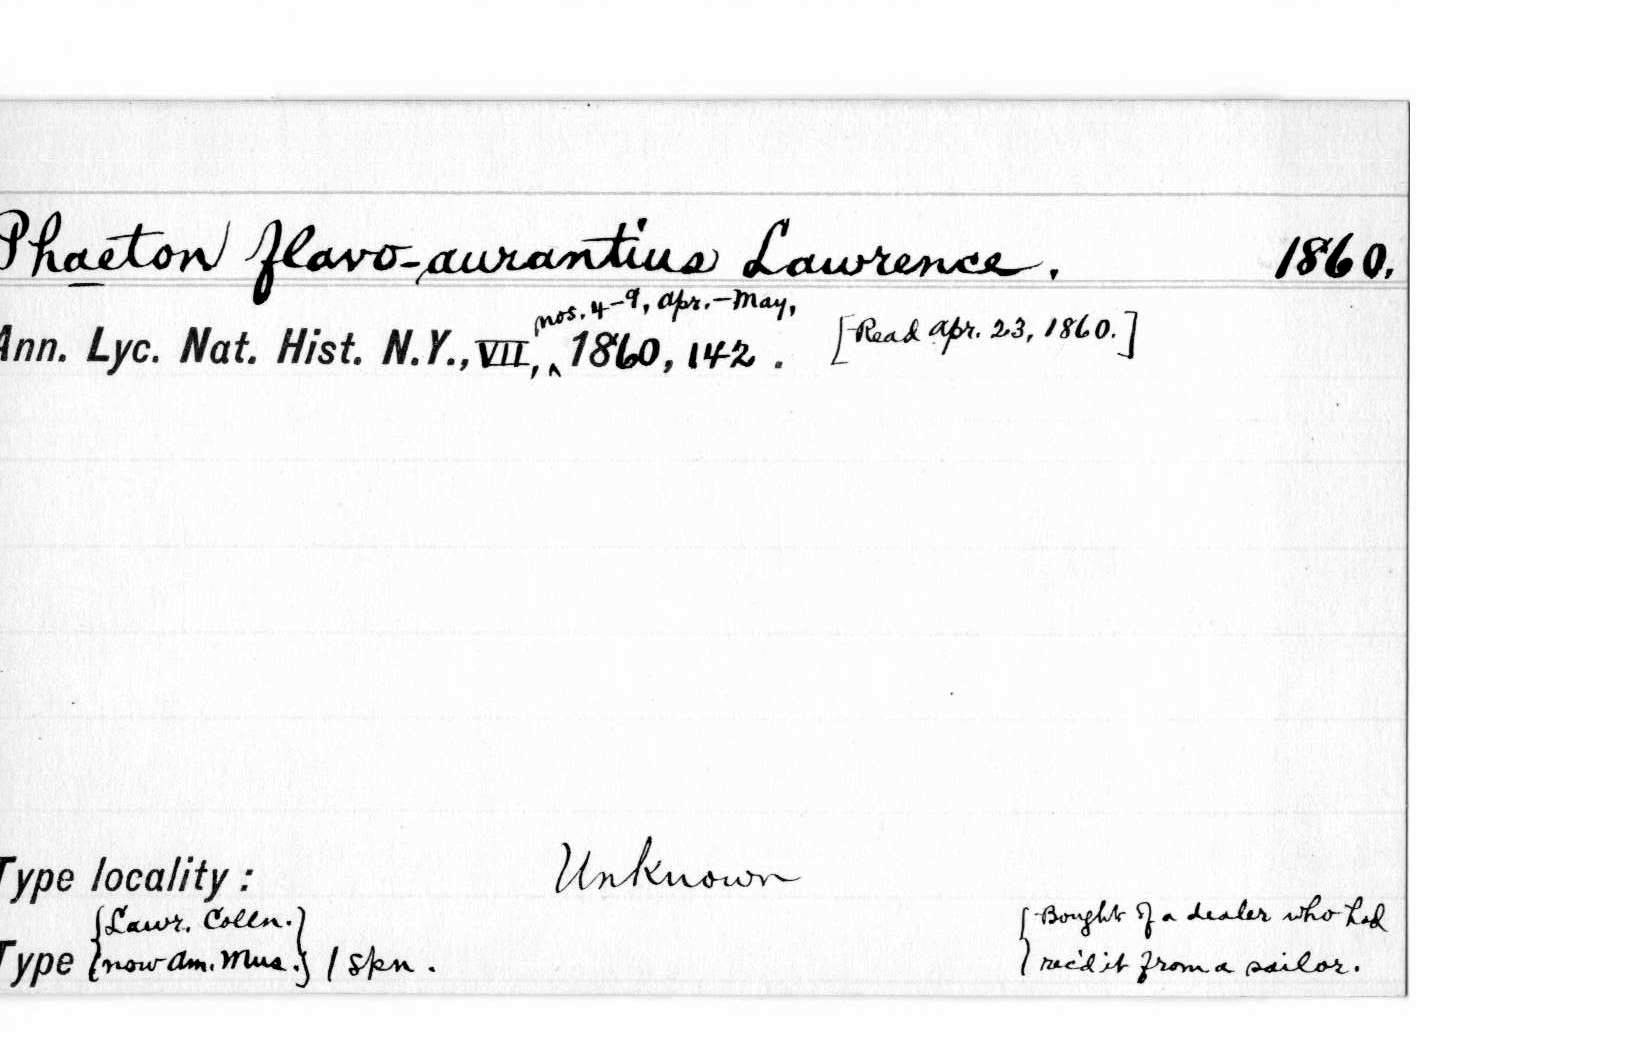 Phaeton flavo-aurantius Lawrence. 1860.
nos. 4-9, Apr.-May,
Ann. Lyc. Nat. Hist. N.Y., VII, ^ 1860, 142. [Read Apr. 23, 1860.]
Type locality: Unknown
{Lawr. Colln.} {Bought of a dealer who had
Type {now Am. Mus.} 1 spn. rec'd it from a sailor.